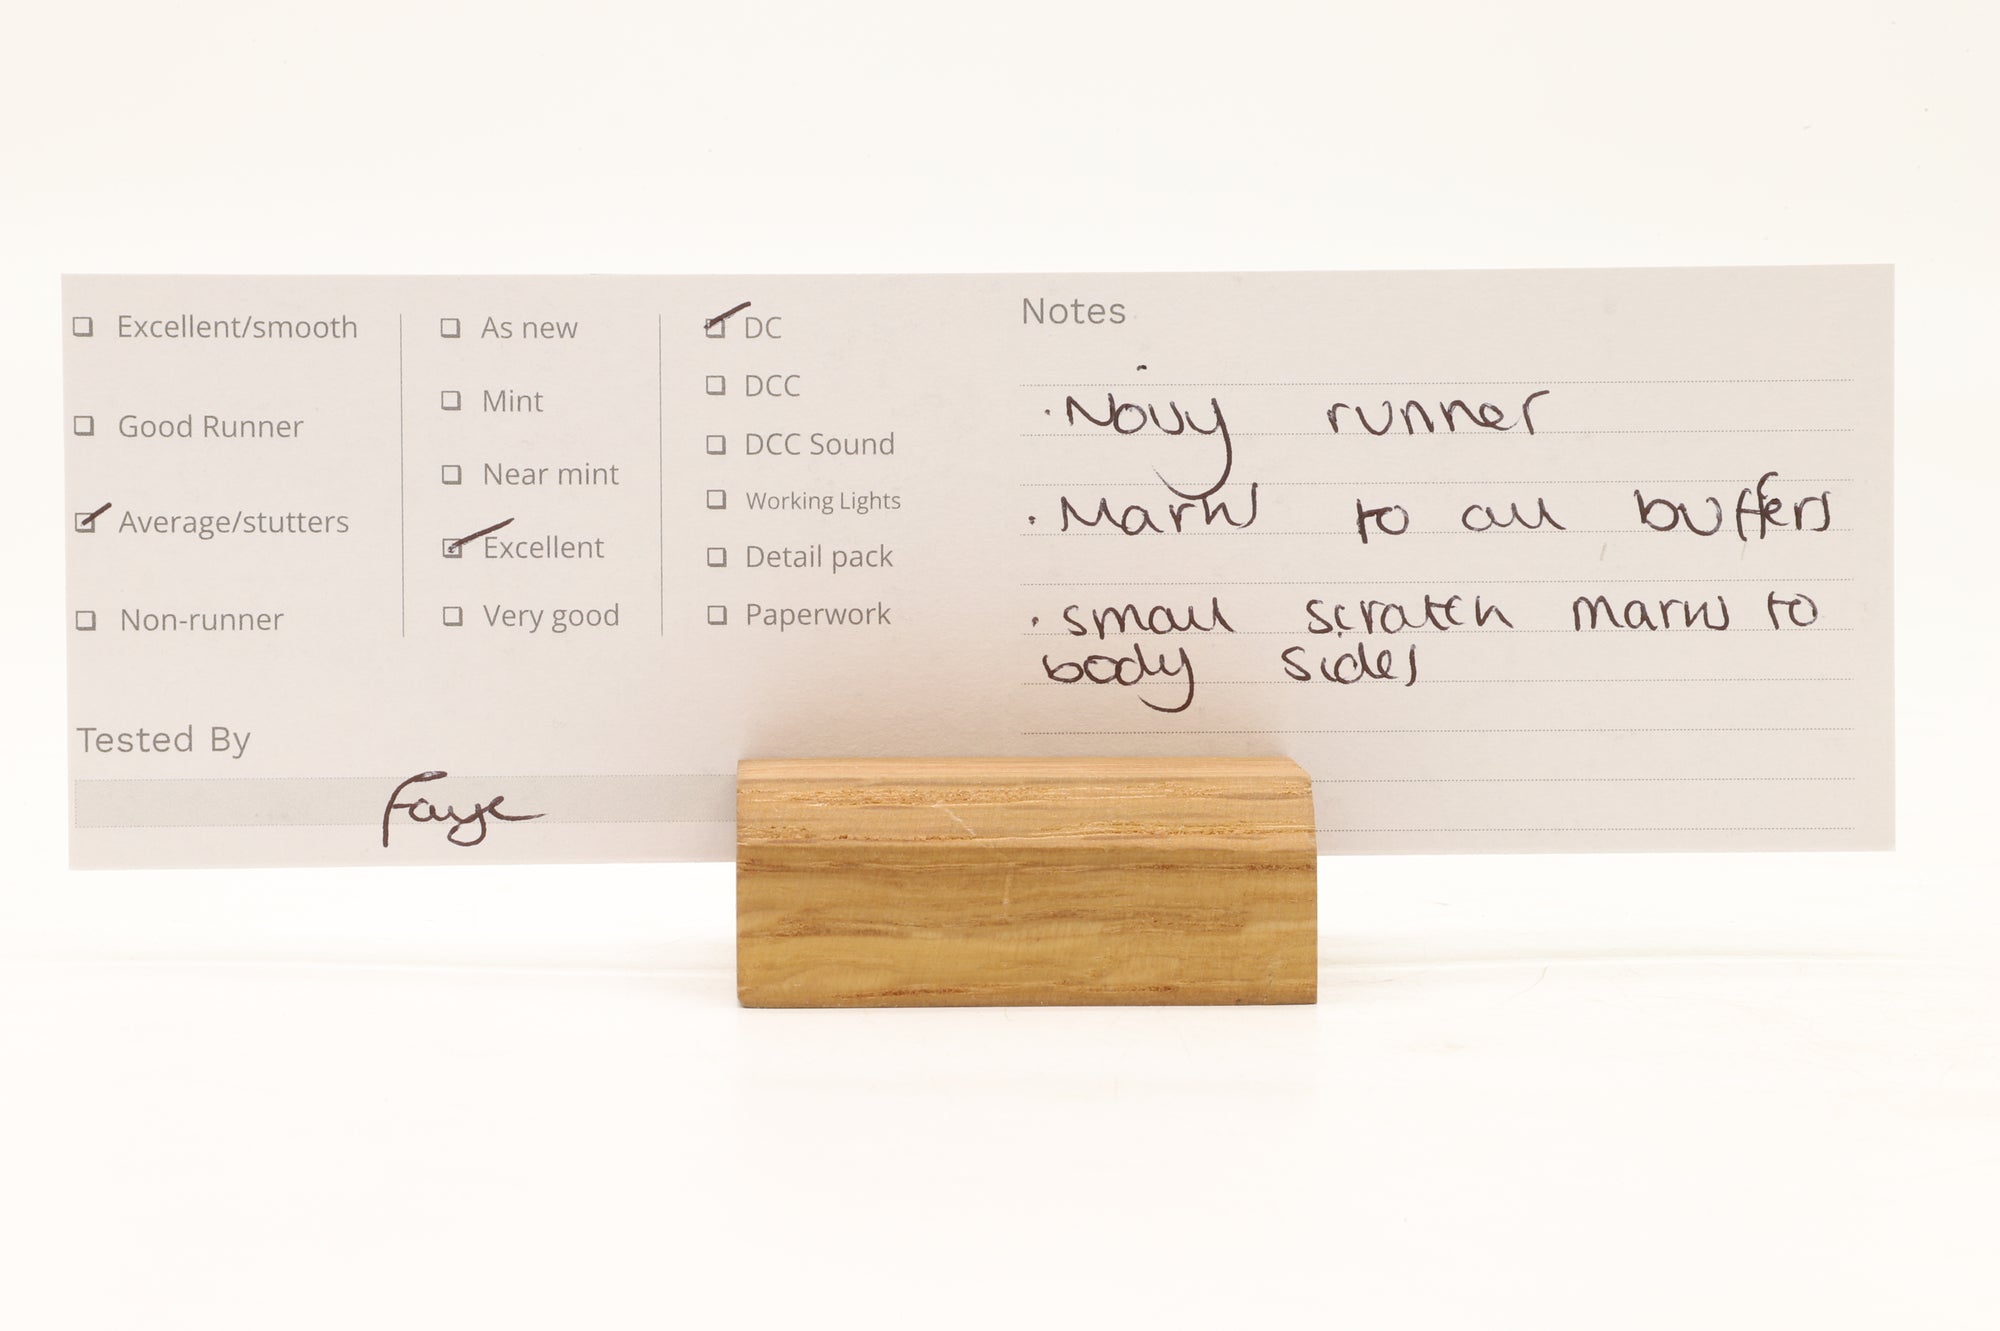 Excellent/smooth
Good Runner
Average/stutters
Non-runner
As new
Mint
Near mint
Excellent
Very good
DC
DCC
DCC Sound
Working Lights
Detail pack
Paperwork
Tested By
Faye
Notes
· Noisy runner
· Marks to all buffers
· small scratch marks to
body sides